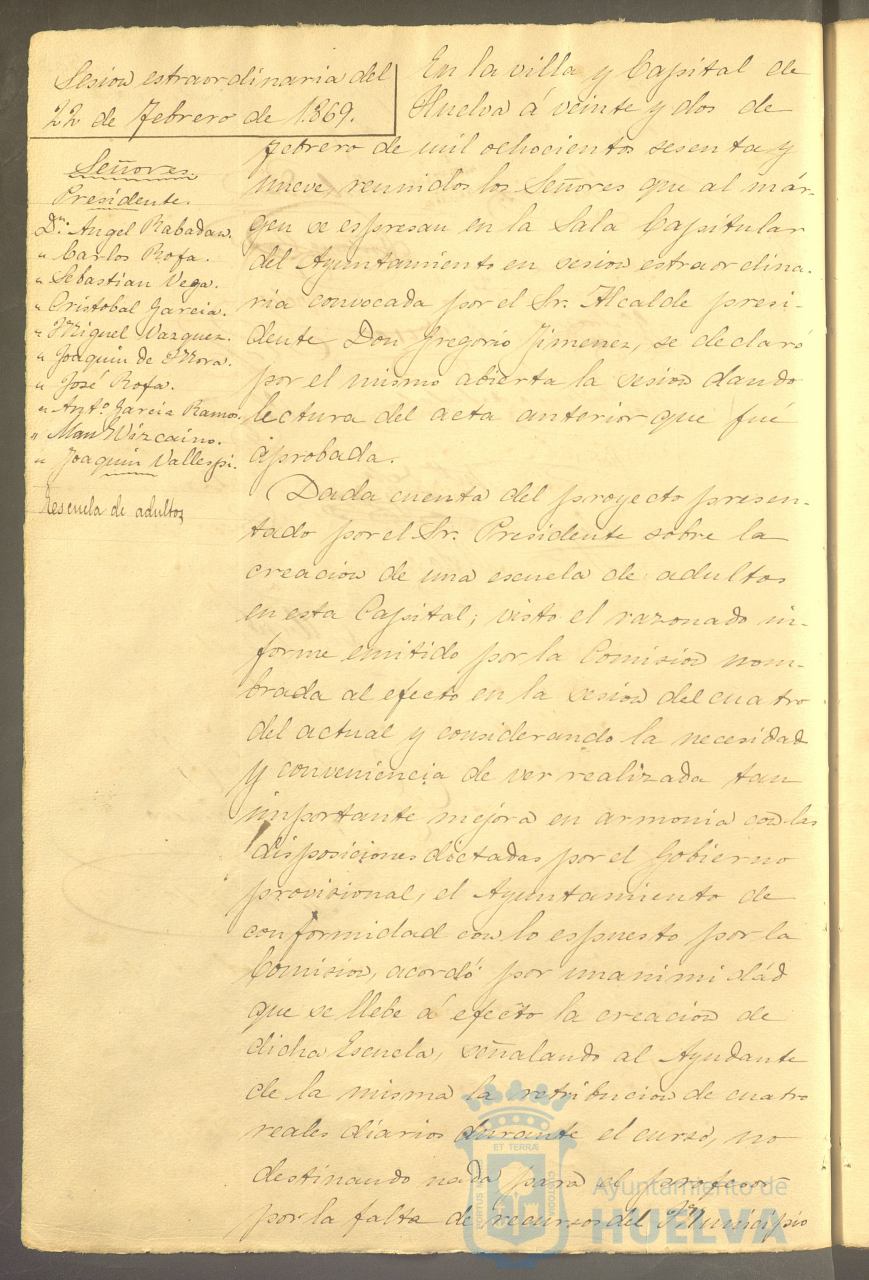 Sesion estraordinaria del
22 de Febrero de 1869.
Señores.
Presidente.
Dn. Angel Rabadan.
" Carlos Rofa.
" Sebastian Vega.
" Cristobal Garcia.
" Miguel Vazquez.
" Joaquin de Mora.
" José Rofa.
" Anto. Garcia Ramos.
" Manl. Vizcaino.
" Joaquin Vallespi.
escuela de adultos
En la villa y Capital de
Huelva á veinte y dos de
Febrero de mil ochocientos sesenta y
nueve, reunidos los Señores que al már-
gen se espresan en la Sala Capitular
del Ayuntamiento en sesion estraordina-
ria convocada por el Sr. Alcalde presi-
dente Don Gregorio Jimenez, se declaró
por el mismo abierta la sesion dando
lectura del acta anterior que fué
aprobada.
Dada cuenta del proyecto presen-
tado por el Sr. Presidente sobre la
creacion de una escuela de adultos
en esta Capital; visto el razonado in-
forme emitido por la Comision nom-
brada al efecto en la sesion del cuatro
del actual y considerando la necesidad
y conveniencia de ver realizada tan
importante mejora en armonia con las
disposiciones dictadas por el Gobierno
provisional, el Ayuntamiento de
conformidad con lo espuesto por la
Comision, acordó por unanimidád
que se llebe á efecto la creacion de
dicha Escuela, señalando al Ayudante
de la misma la retribucion de cuatro
reales diarios durante el curso, no
destinando nada para el profesor
por la falta de recursos del Municipio
PORTUS MARIS
ET TERRÆ
CUSTODIA
Ayuntamiento de
HUELVA